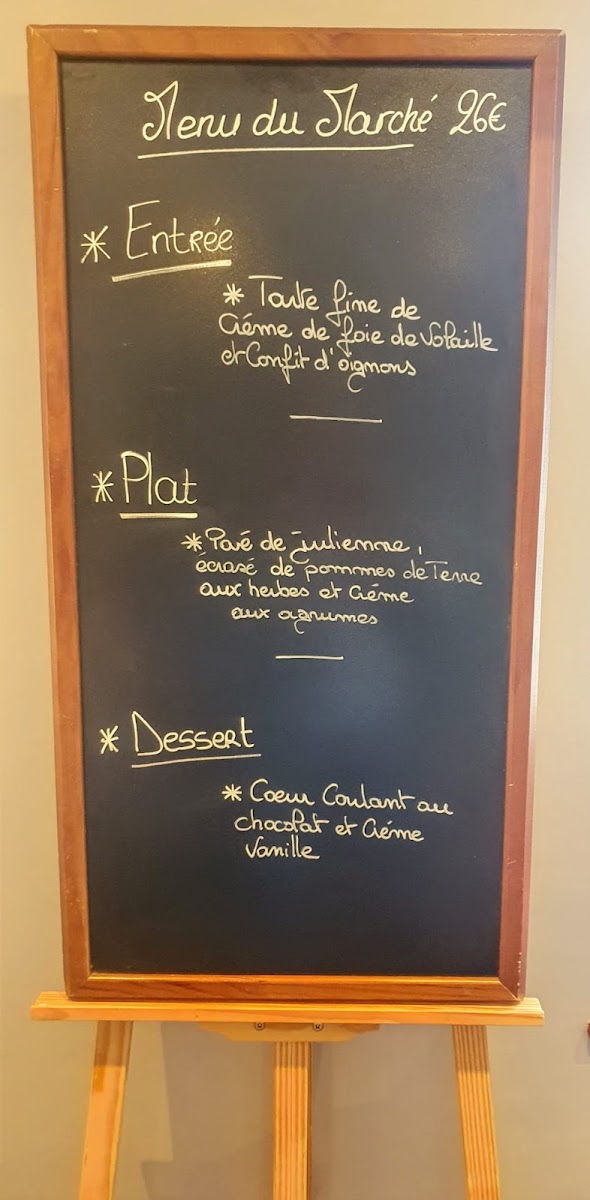 Menu du Marché 26€
* Entrée
* Tarte fine de
Crème de foie de Volaille
et Confit d'oignons
* Plat
* Pavé de julienne,
écrasé de pommes de Terre
aux herbes et Crème
aux agrumes
* Dessert
* Coeur Coulant au
chocolat et Crème
Vanille